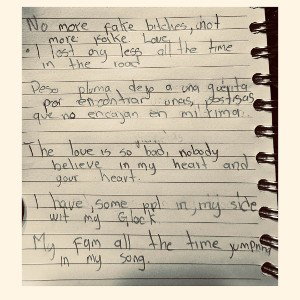 No more fake bitches, not
more fake Love.
I lost my less all the time
in the road
Peso pluma dejo a una güerita
por encontrar unas postisas
que no encajan en mi rima.
The love is so "bad, nobody
believe in my heart and
your heart.
I have some ppl in my side
wit my Glock
My fam all the time jumping
in my song.